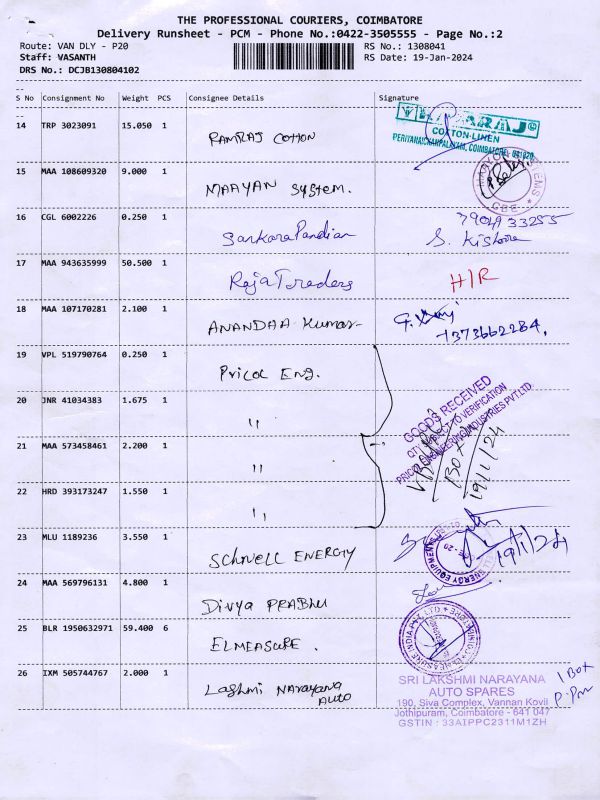 THE PROFESSIONAL COURIERS, COIMBATORE
Delivery Runsheet - PCM - Phone No.:0422-3505555 - Page No.:2
Route: VAN DLY - P20
RS No.: 1308041
Staff: VASANTH
RS Date: 19-Jan-2024
DRS No.: DCJB130804102
--
S No Consignment No Weight PCS Consignee Details Signature
--
14 TRP 3023091 15.050 1 RAMRAJ COTTON
RAMARAJ
COTTON-LINEN
15 MAA 108609320 9.000 1 MAAYAN SYSTEM.
CBE
16 CGL 6002226 0.250 1 SankaraPandian
S. Kishore
17 MAA 943635999 50.500 1 RajaTraders H/R
18 MAA 107170281 2.100 1 ANANDAA Kumar
19 VPL 519790764 0.250 1 Pricol Eng.
20 JNR 41034383 1.675 1 "
GOODS RECEIVED
QTY SUBJECT TO VERIFICATION
PRICOL ENGINEERING INDUSTRIES PVT.LTD.
BOX
19/1/24
21 MAA 573458461 2.200 1 "
22 HRD 393173247 1.550 1 "
23 MLU 1189236 3.550 1 SCHNELL ENERGY
19/1/24
24 MAA 569796131 4.800 1 Divya PRABHU
25 BLR 1950632971 59.400 6 ELMEASURE.
26 IXM 505744767 2.000 1 Lakshmi Narayana
AUTO
SRI LAKSHMI NARAYANA
AUTO SPARES
190, Siva Complex, Vannan Kovil
Jothipuram, Coimbatore - 641 047
GSTIN : 33AIPPC2311M1ZH
1 Box